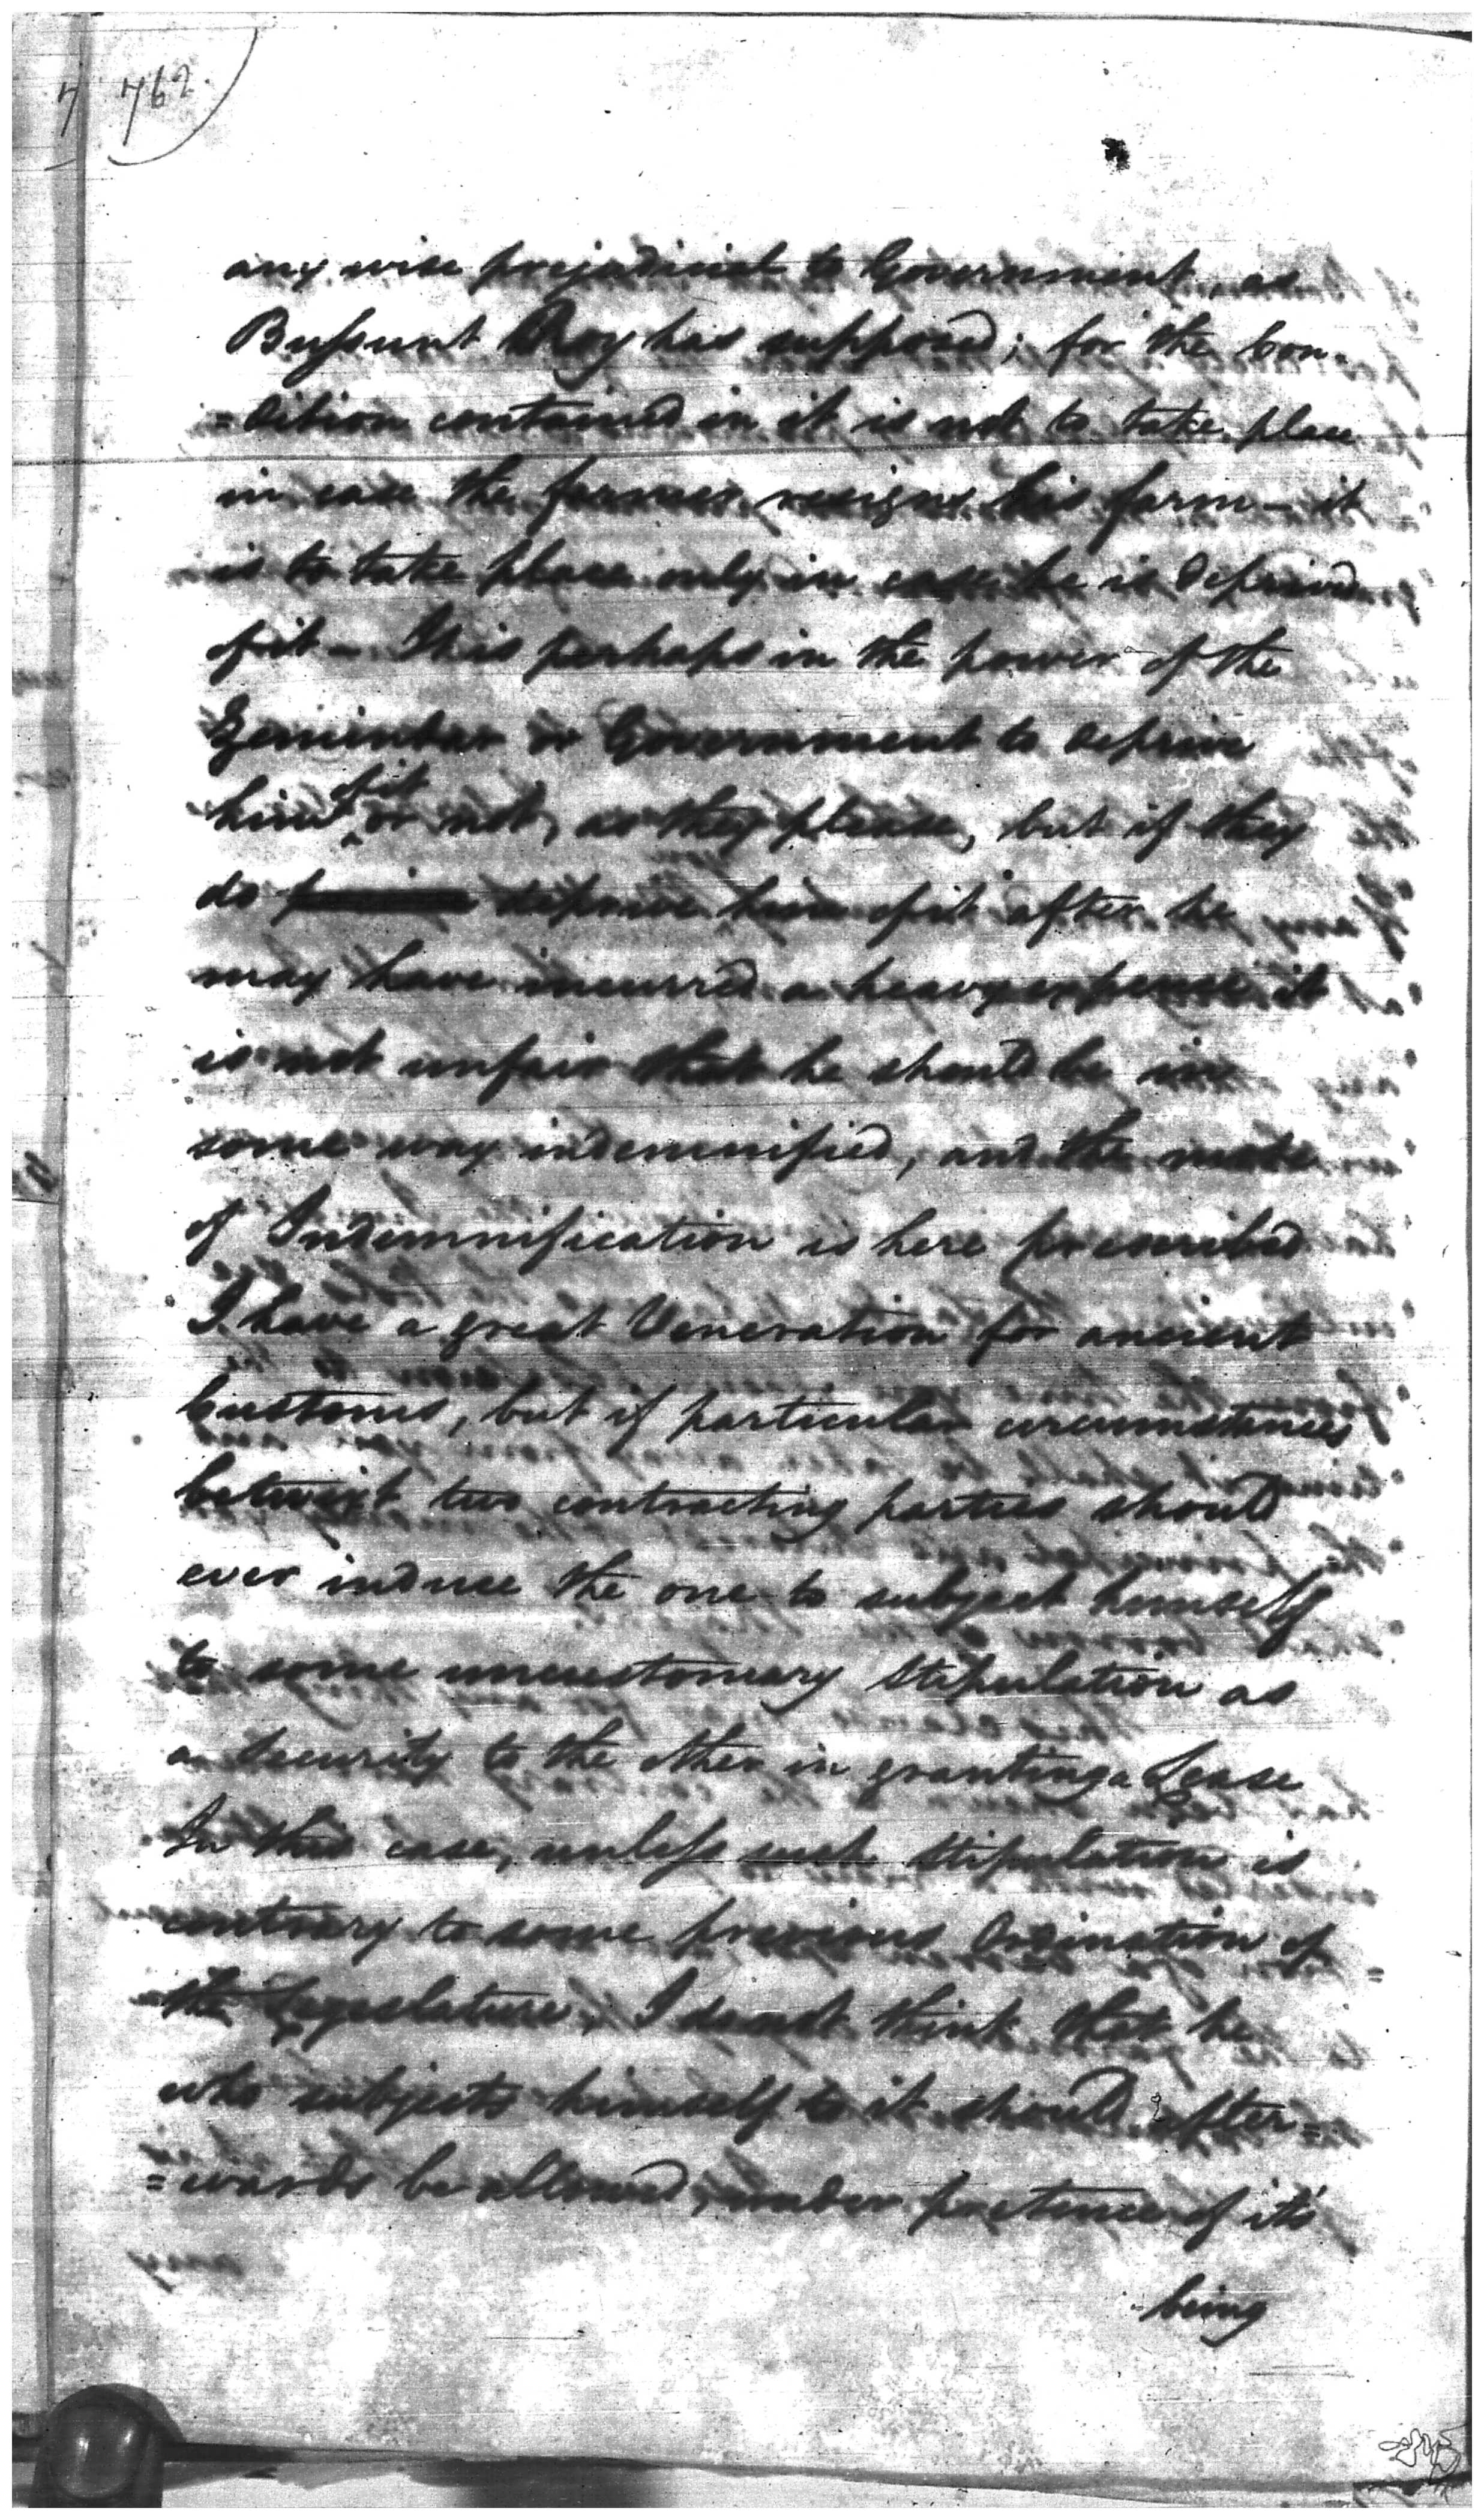 762
any wise prejudicial to Government, as
Bussunt Roy has supposed; for the Con-
=dition contained in it is not to take place
in case the farmer resigns his farm - it
is to take place only in case he is deprived
of it - It is perhaps in the power of the
Zemindar or Government to deprive
him of it or not, as they please, but if they
do deprive him of it after he
may have incurred a heavy expense it
is not unfair that he should be in
some way indemnified, and the mode
of Indemnification is here prescribed
I have a great Veneration for ancient
Customs, but if particular circumstances
betwixt two contracting parties should
ever induce the one to subject himself
to some uncustomary stipulation as
a security to the other in granting a Lease
In this case, unless such stipulation is
contrary to some previous Ordination of
the Legislature, I do not think that he
who subjects himself to it should after=
=wards be allowed, under pretence of its
being